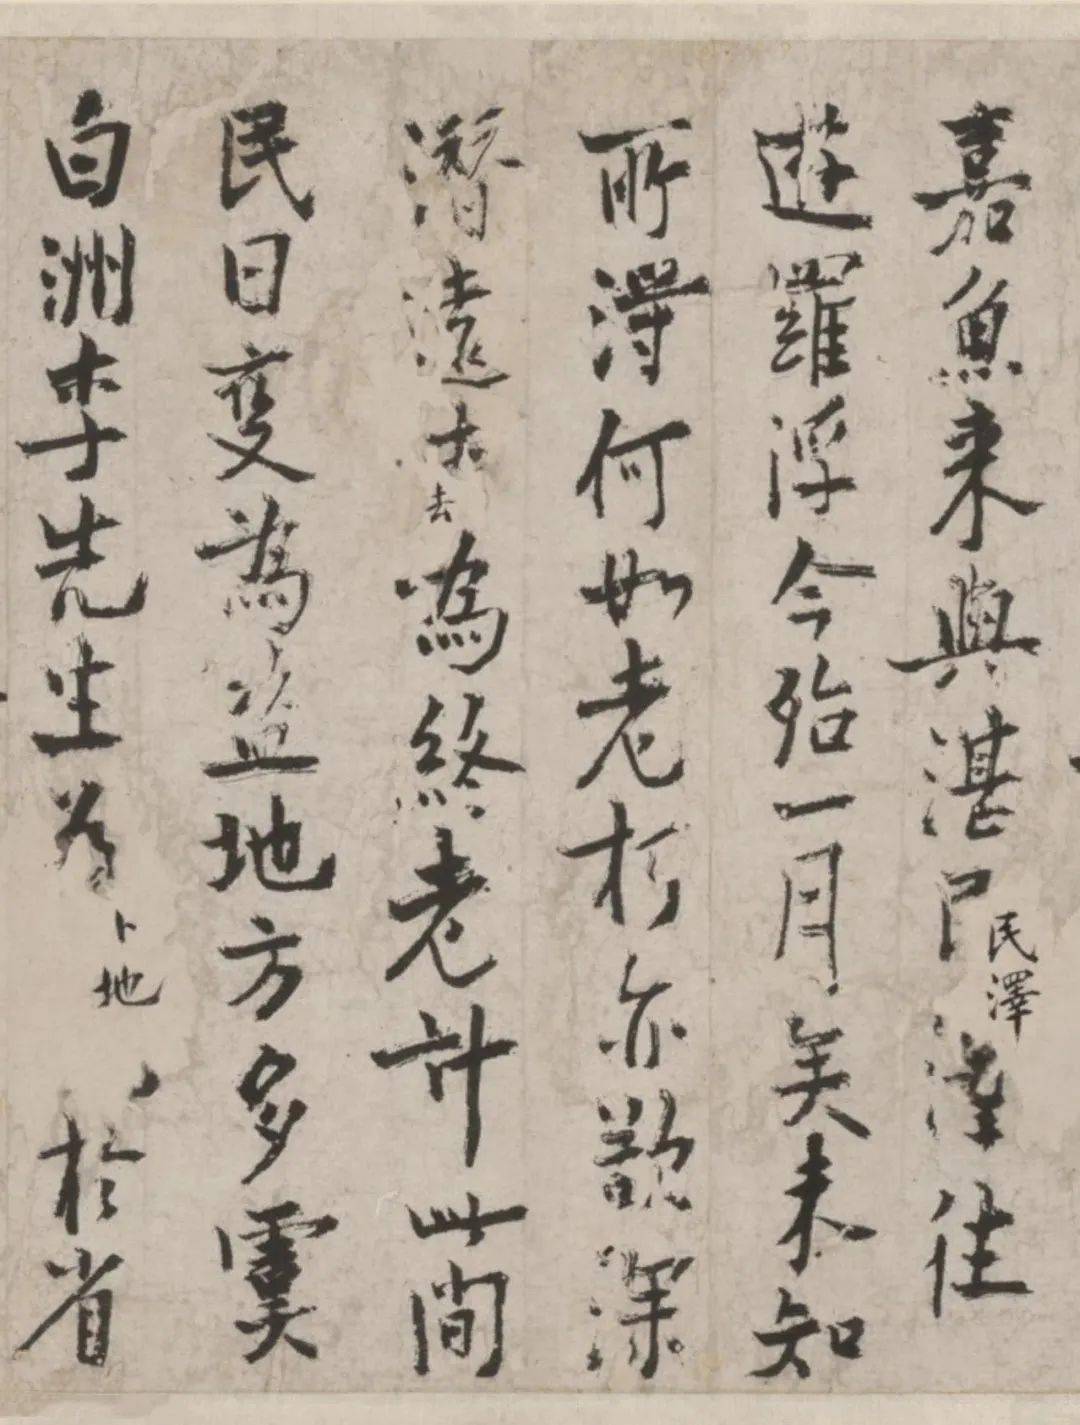 嘉魚來與湛民澤往
遊羅浮今殆一月矣未知
所得何如老朽亦欲深
潛遠去為終老計此間
民日變為盜地方多虞
白洲李先生為卜地於省